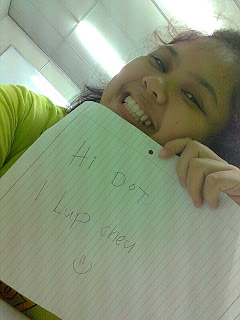 Hi DOT.
I Lup cheu